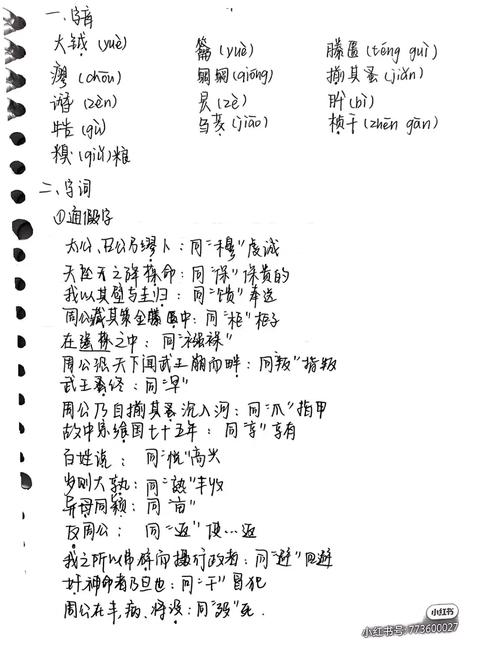 一、字音
大钺(yuè) 籥(yuè) 縢匮(téng guì)
瘳(chōu) 煢煢(qióng) 揃其蚤(jiǎn)
谮(zèn) 昃(zè) 肸(bì)
牿(gù) 刍茭(jiāo) 桢干(zhēn gān)
糗(qiǔ)粮
二、字词
①通假字
太公、召公乃缪卜：同“穆”虔诚
无坠天之降葆命：同“保”保贵的
我以其璧与圭归：同“馈”奉送
周公藏其策金縢匮中：同“柜”柜子
在强葆之中：同“襁褓”
周公恐天下闻武王崩而畔：同“叛”指叛
武王蚤终：同“早”
周公乃自揃其蚤沉入河：同“爪”指甲
故中宗飨国七十五年：同“享”享有
百姓说：同“悦”高兴
岁则大孰：同“熟”丰收
异母同颖：同“亩”
反周公：同“返”使…返
我之所以弗辟而摄行政者：同“避”回避
奸神命者乃旦也：同“干”冒犯
周公在丰，病，将没：同“殁”死.
小红书
小红书号:773600027